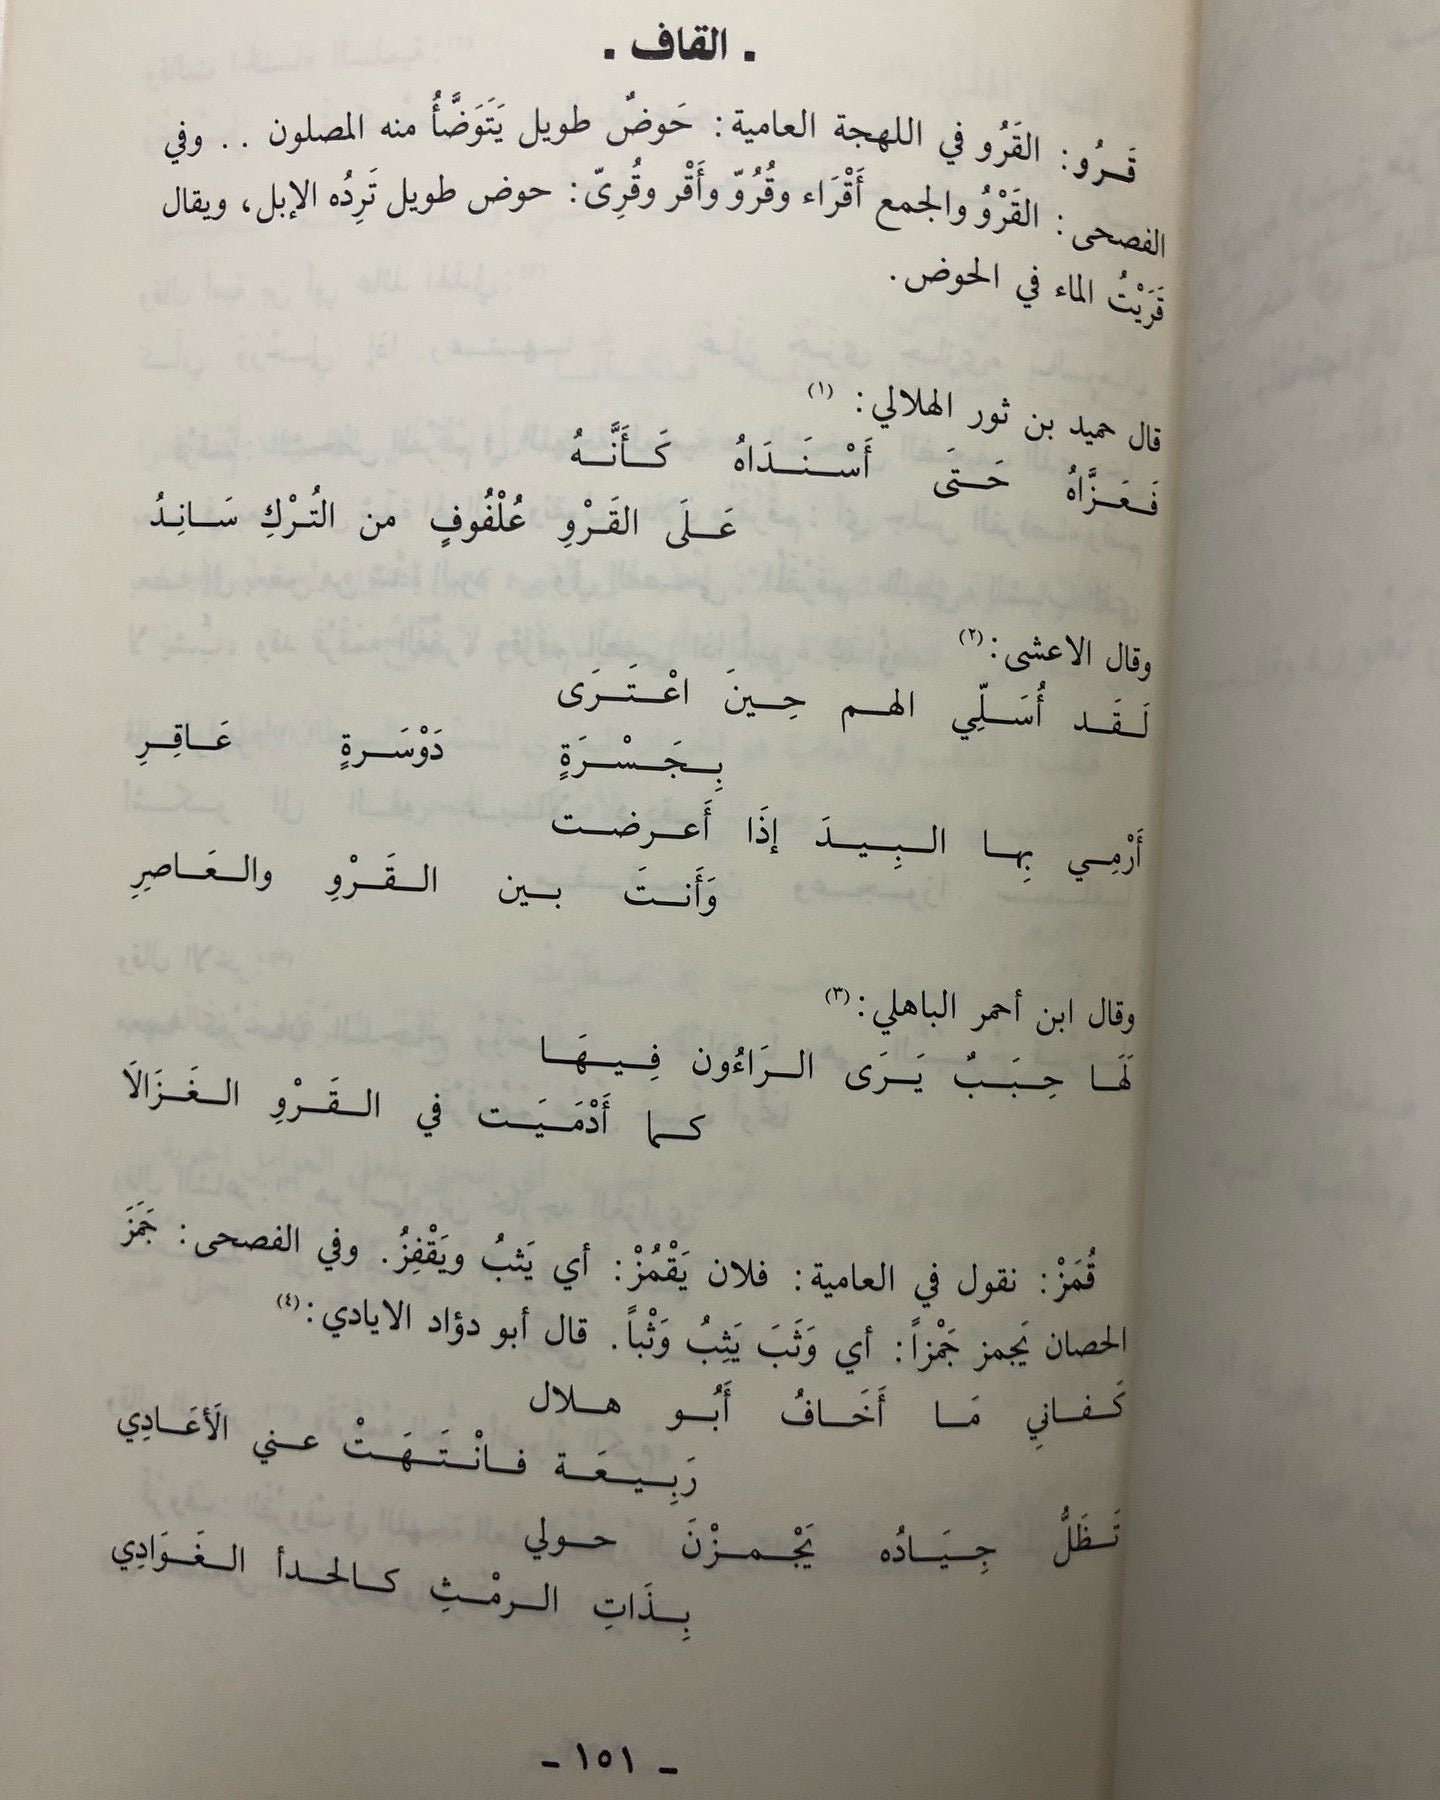 . القاف .
قَرُو: القَرُو في اللهجة العامية: حَوضٌ طويل يَتَوَضَّأُ منه المصلون . . وفي
الفصحى: القَرْوُ والجمع أَقْرَاء وقُرُوّ وأَقْر وقُرِىّ: حوض طويل تَرِدُه الإبل، ويقال
قَرَيْتُ الماء في الحوض.
قال حميد بن ثور الهلالي: (١)
فَعَزَّاهُ حَتَى أَسْنَدَاهُ كَأَنَّهُ
عَلَى القَرْوِ عُلْفُوفٍ من التُرْكِ سَانِدُ
وقال الاعشى: (٢)
لَقَد أُسَلِّي الهم حِينَ اعْتَرَى
بِجَسْرَةٍ دَوْسَرةٍ عَاقِرِ
أَرْمِي بِها البِيدَ إذَا أَعرضت
وَأَنتَ بين القَرْوِ والعَاصرِ
وقال ابن أحمر الباهلي: (٣)
لَهَا حِبَبٌ يَرَى الرَاءُون فِيهَا
كما أَدْمَيَت في القَرْوِ الغَزَالَا
قُمَزْ: نقول في العامية: فلان يَقْمُزْ: أي يَثبُ ويَقْفِزُ. وفي الفصحى: جَمَزَ
الحصان يَجمز جَمْزاً: أي وَثَبَ يَثِبُ وَثْباً. قال أبو دؤاد الايادي: (٤)
كَفانِي مَا أَخَافُ أَبُو هلال
رَبِيعَة فانْتَهَتْ عني الَأعَادِي
تَظَلُّ جِيَادُه يَجْمزْنَ حولي
بِذَاتِ الرمْثِ كالحدأ الغَوَادِي
- ١٥١ -